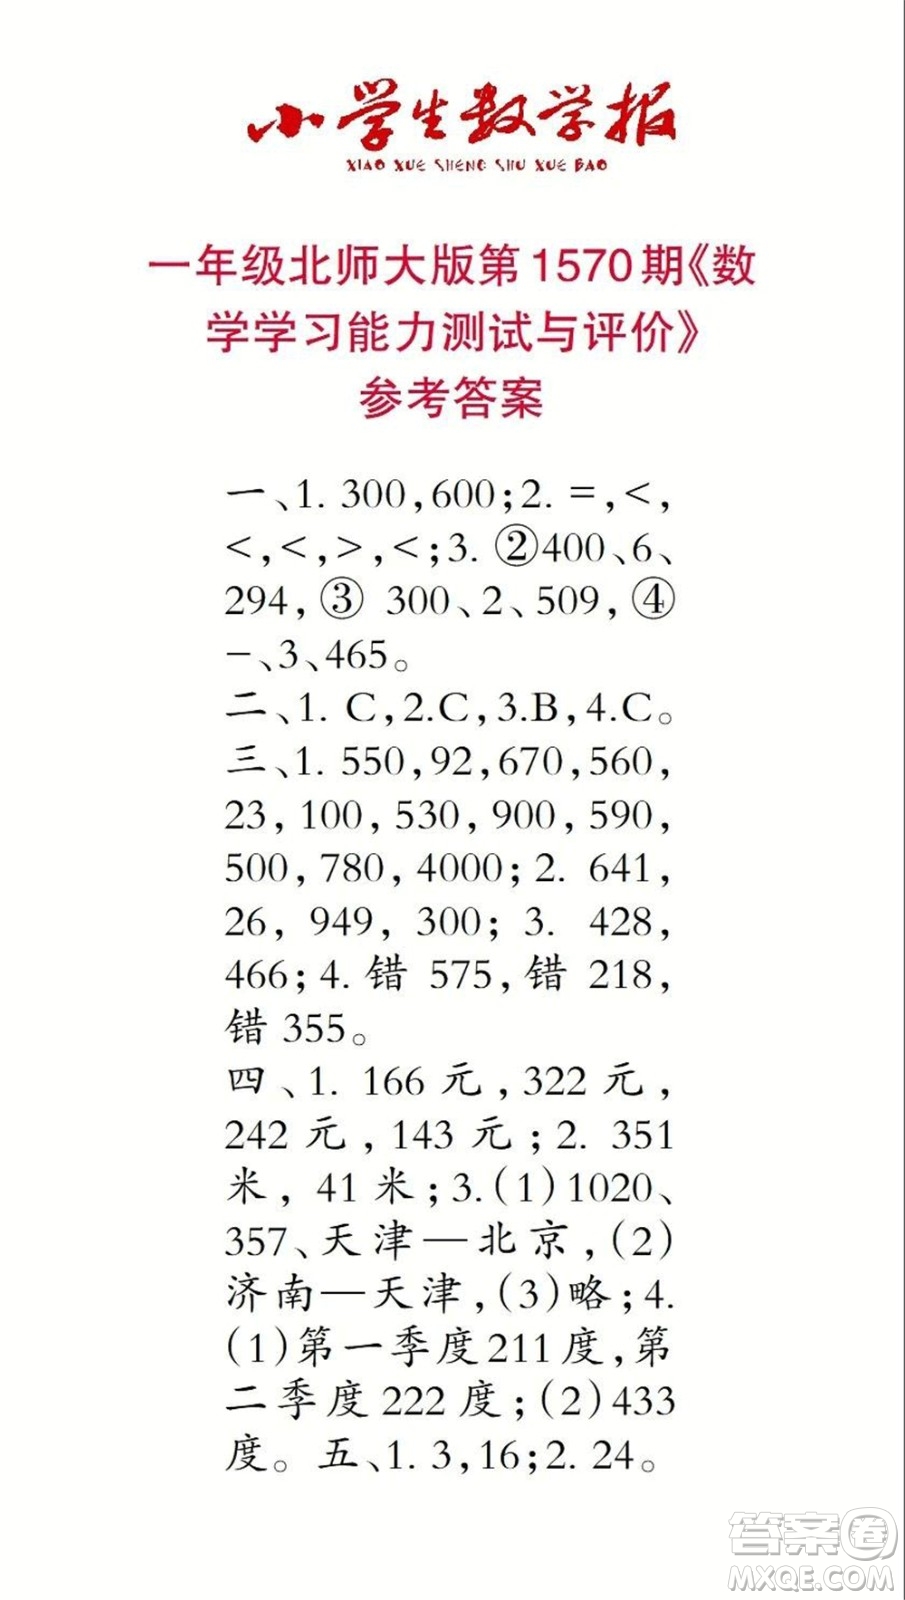 小学生数学报
XIAO XUE SHENG SHU XUE BAO
一年级北师大版第1570期《数
学学习能力测试与评价》
参考答案
一、1. 300,600;2. =,<,
<,<,>,<;3. ②400、6、
294,③ 300、2、509,④
-、3、465。
二、1. C,2.C,3.B,4.C。
三、1. 550,92,670,560,
23,100,530,900,590,
500,780,4000;2. 641,
26,949,300;3. 428,
466;4.错 575,错 218,
错 355。
四、1. 166 元,322 元,
242 元,143 元;2. 351
米,41 米;3.(1)1020、
357、天津—北京,(2)
济南—天津,(3)略;4.
(1)第一季度211度,第
二季度222度;(2)433
度。五、1. 3,16;2. 24。
答案卷
MXQE.COM